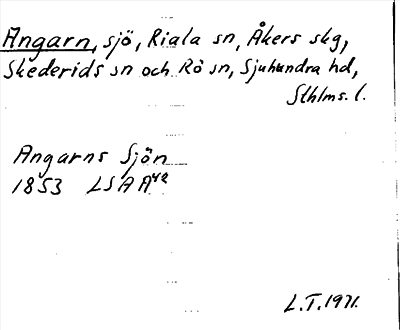 Angarn, sjö, Riala sn, Åkers skg,
Skederids sn och Rö sn, Sjuhundra hd,
Sthlms. l.
Angarns Sjön
1853 LSA A42
L.T.1971.